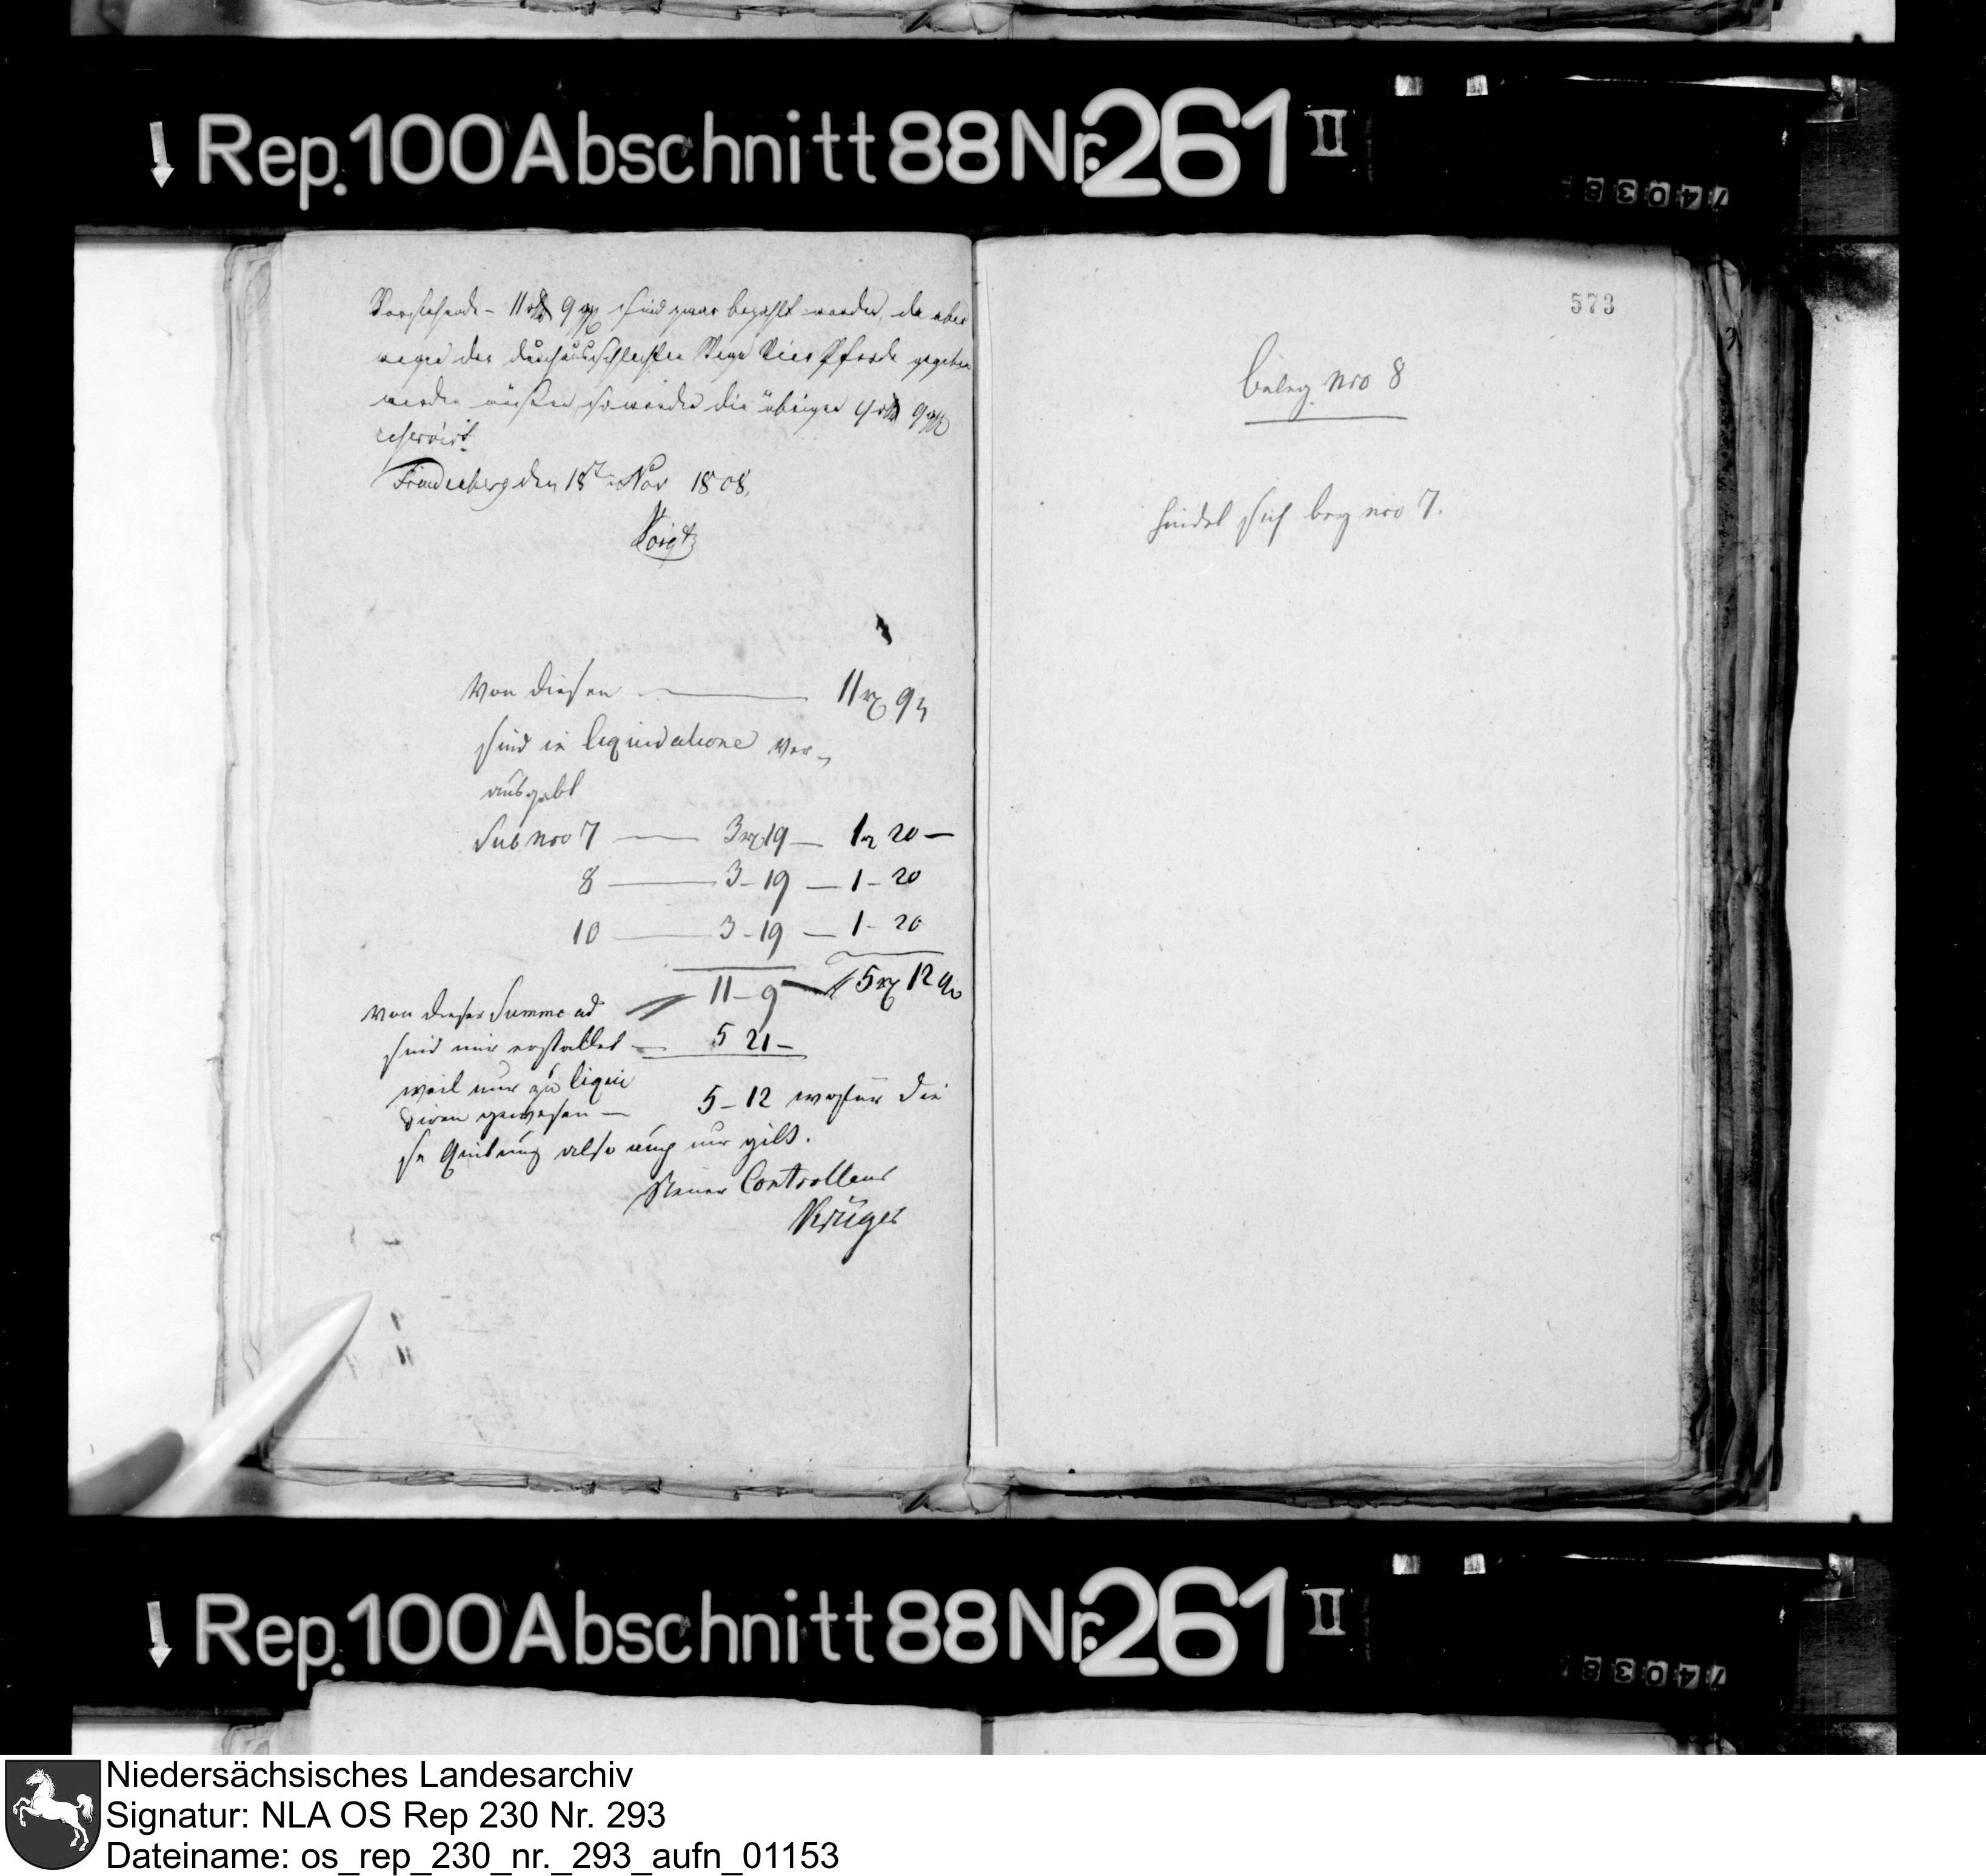 Rep. 100 Abschnitt 88 Nr. 261 II
74038
Vorstehende – 11 rth 9 ggr sind zwar bezahlt worden, da aber
wegen der durchaus schlechten Wege Vier Pferde gegeben
werden müssen so werden die übrigen 4 rth 9 ggr
reservirt.
Freudenberg den 18t Nov 1808.
Voigt
Von diesen — 11 rg 9
sind in liquidatione ver-
ausgabt
Sub nro 7 — 3 rg 19 — 1 r 20 –
8 — 3 – 19 — 1 – 20
10 — 3 – 19 — 1 – 20
11 – 9 — 5 rg 12 g
Von dieser Summe ad
sind mir erstattet — 5 21 –
weil nur zu liqui
diren gewesen — 5 – 12 wofür die
se Quitung also auch nur gilt.
Steuer Controlleur
Krüger
573
Beleg nro 8
findet sich bey nro 7.
Rep. 100 Abschnitt 88 Nr. 261 II
74038
Niedersächsisches Landesarchiv
Signatur: NLA OS Rep 230 Nr. 293
Dateiname: os_rep_230_nr._293_aufn_01153